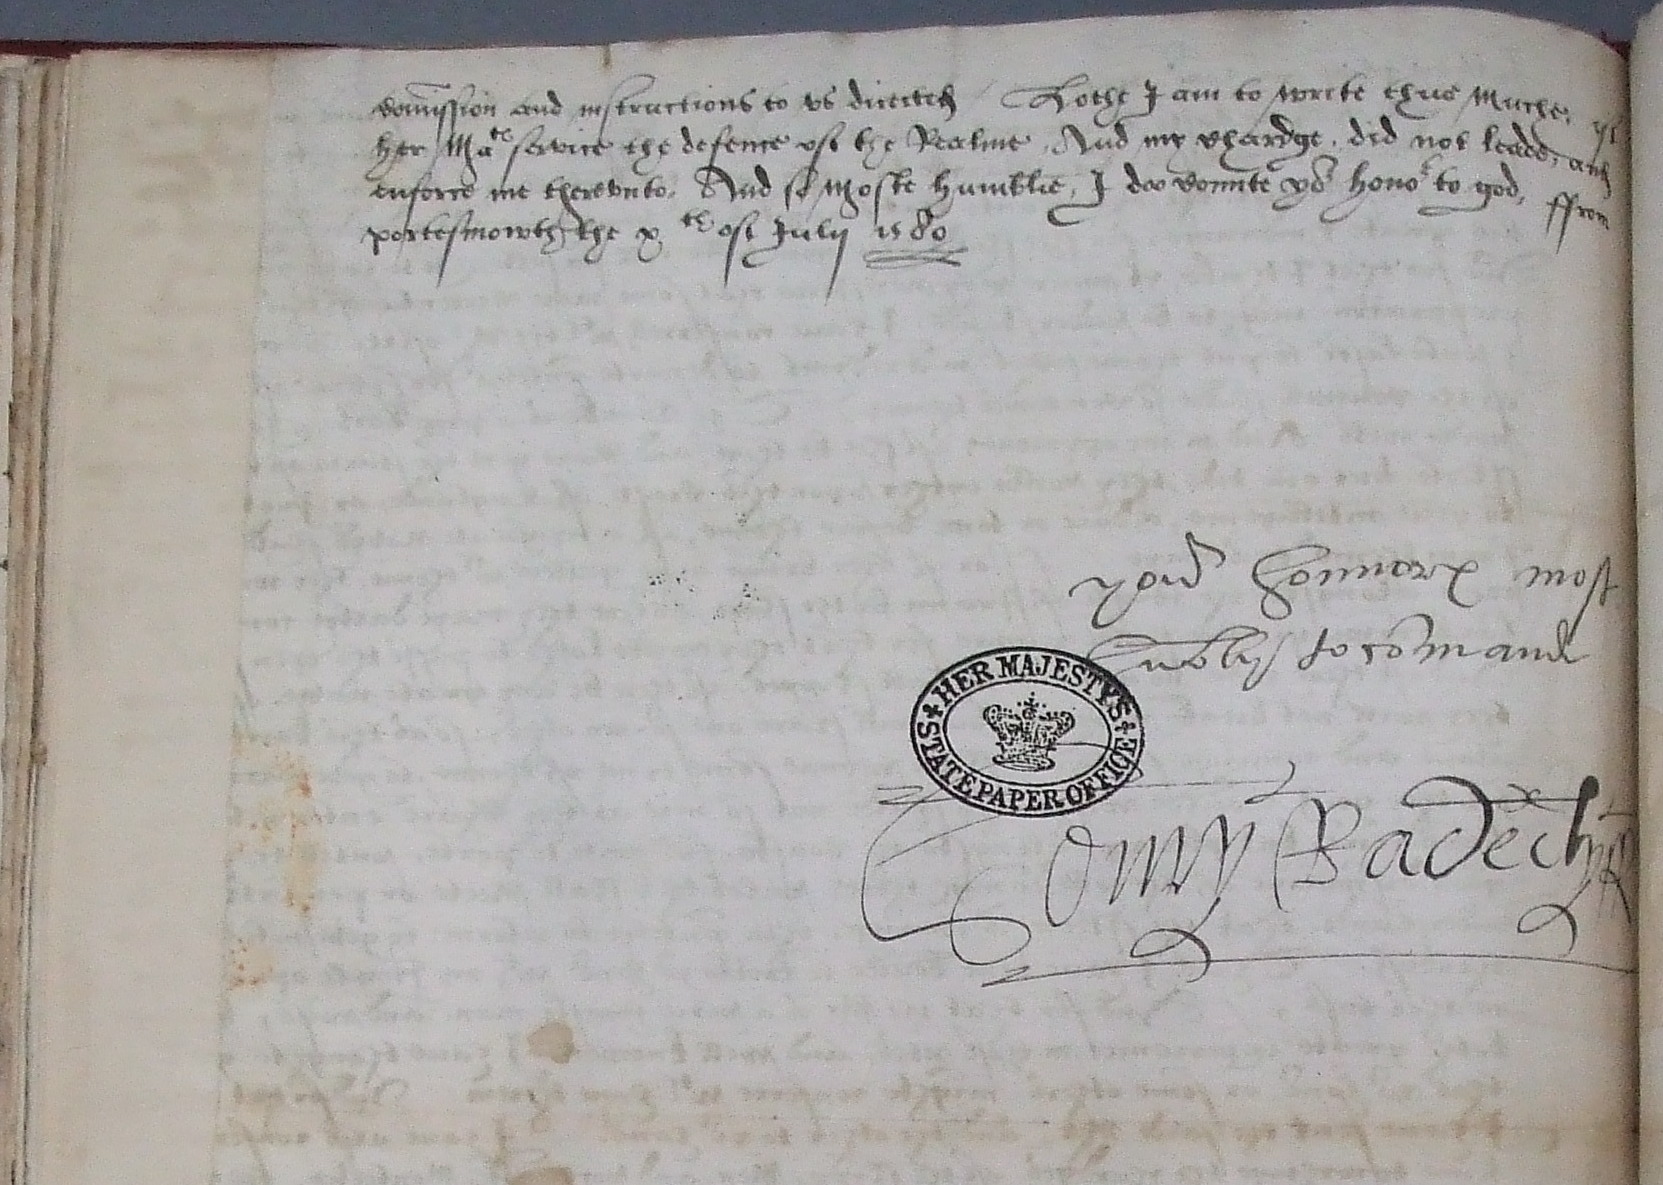 Comission and instructions to vs directed Lothe I am to write thus Muche, yf
her Ma.tes service the defence off the Realme, And my Chardge, did not leade, and
enforce me therevnto. And so Moste humblie, I doo Comite yor honor to god, ffrom
portesmowth, the x th off Julij 1580
yowr honnors most
humbly to comand
HER MAJESTY'S
STATE PAPER OFFICE
Henry Radeclyff